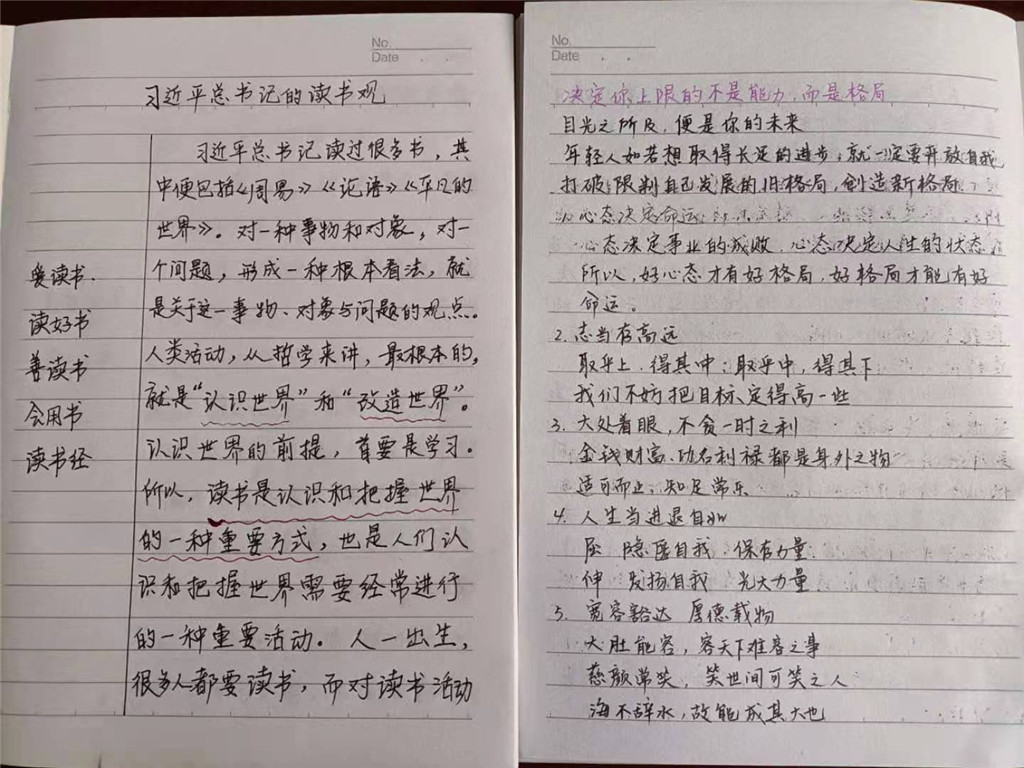 No.
Date
习近平总书记的读书观
习近平总书记读过很多书，其
中便包括《周易》《论语》《平凡的
世界》。对一种事物和对象，对一
个问题，形成一种根本看法，就
是关于这一事物、对象与问题的观点。
人类活动，从哲学来讲，最根本的，
就是“认识世界”和“改造世界”。
认识世界的前提，首要是学习。
所以，读书是认识和把握世界
的一种重要方式，也是人们认
识和把握世界需要经常进行
的一种重要活动。人一出生，
很多人都要读书，而对读书活动
爱读书.
读好书
善读书
会用书
读书经
No.
Date
决定你上限的不是能力，而是格局
目光之所及，便是你的未来
年轻人如若想取得长足的进步，就一定要开放自我
打破限制自己发展的旧格局，创造新格局
1. 心态决定命运
心态决定事业的成败，心态决定人生的状态
所以，好心态才有好格局，好格局才能有好
命运。
2. 志当有高远
取乎上，得其中；取乎中，得其下
我们不妨把目标定得高一些
3. 大处着眼，不贪一时之利
金钱财富、功名利禄都是身外之物
适可而止，知足常乐
4. 人生当进退自如
屈 隐匿自我 保存力量
伸 发扬自我 光大力量
5. 宽容豁达 厚德载物
大肚能容，容天下难容之事
慈颜常笑，笑世间可笑之人
海不辞水，故能成其大也